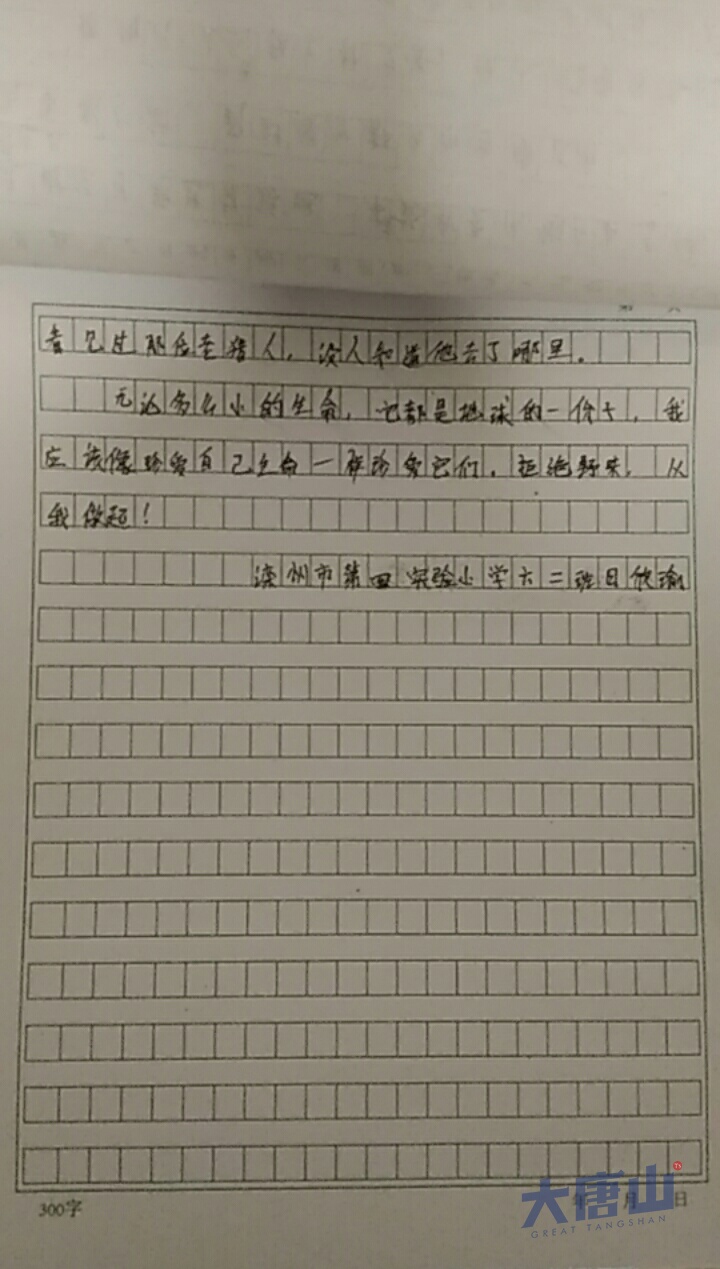 看见过那位老猎人，没人知道他去了哪里。
无论多么小的生命，它都是地球的一份子，我
应该像珍爱自己生命一样珍爱它们，拒绝野味，从
我做起！
滦州市第四实验小学六二班
300字
年 月 日
大唐山
GREAT TANGSHAN